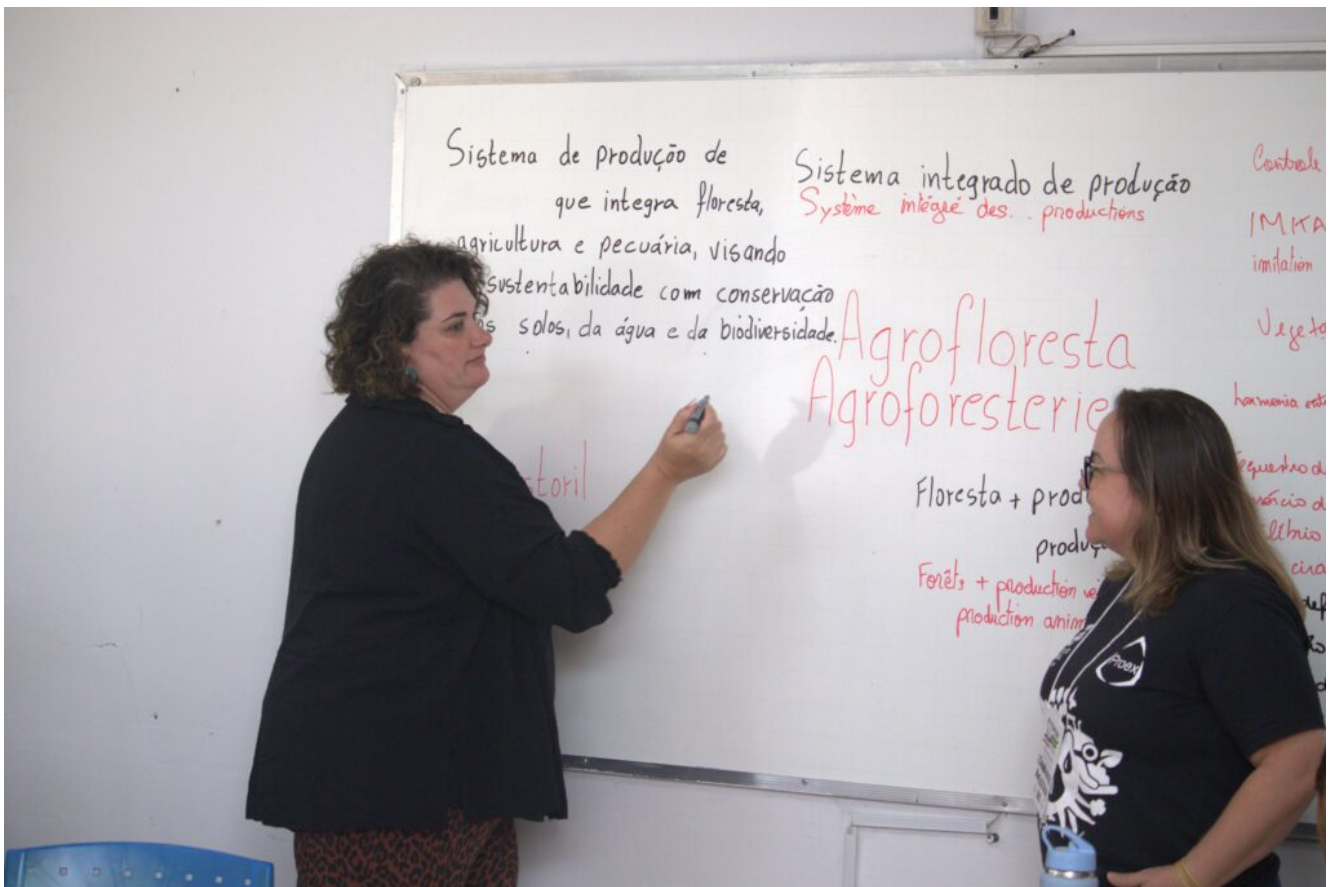 Sistema de produção de
que integra floresta,
agricultura e pecuária, visando
sustentabilidade com conservação
solos, da água e da biodiversidade.
storil
Sistema integrado de produção
Système intégré des.. productions
Agrofloresta
Agroforesterie
Floresta + prod
produç
Forêts + production
production anim
Controle
IMKA
imitation
Vegeta
harmonia
Proex